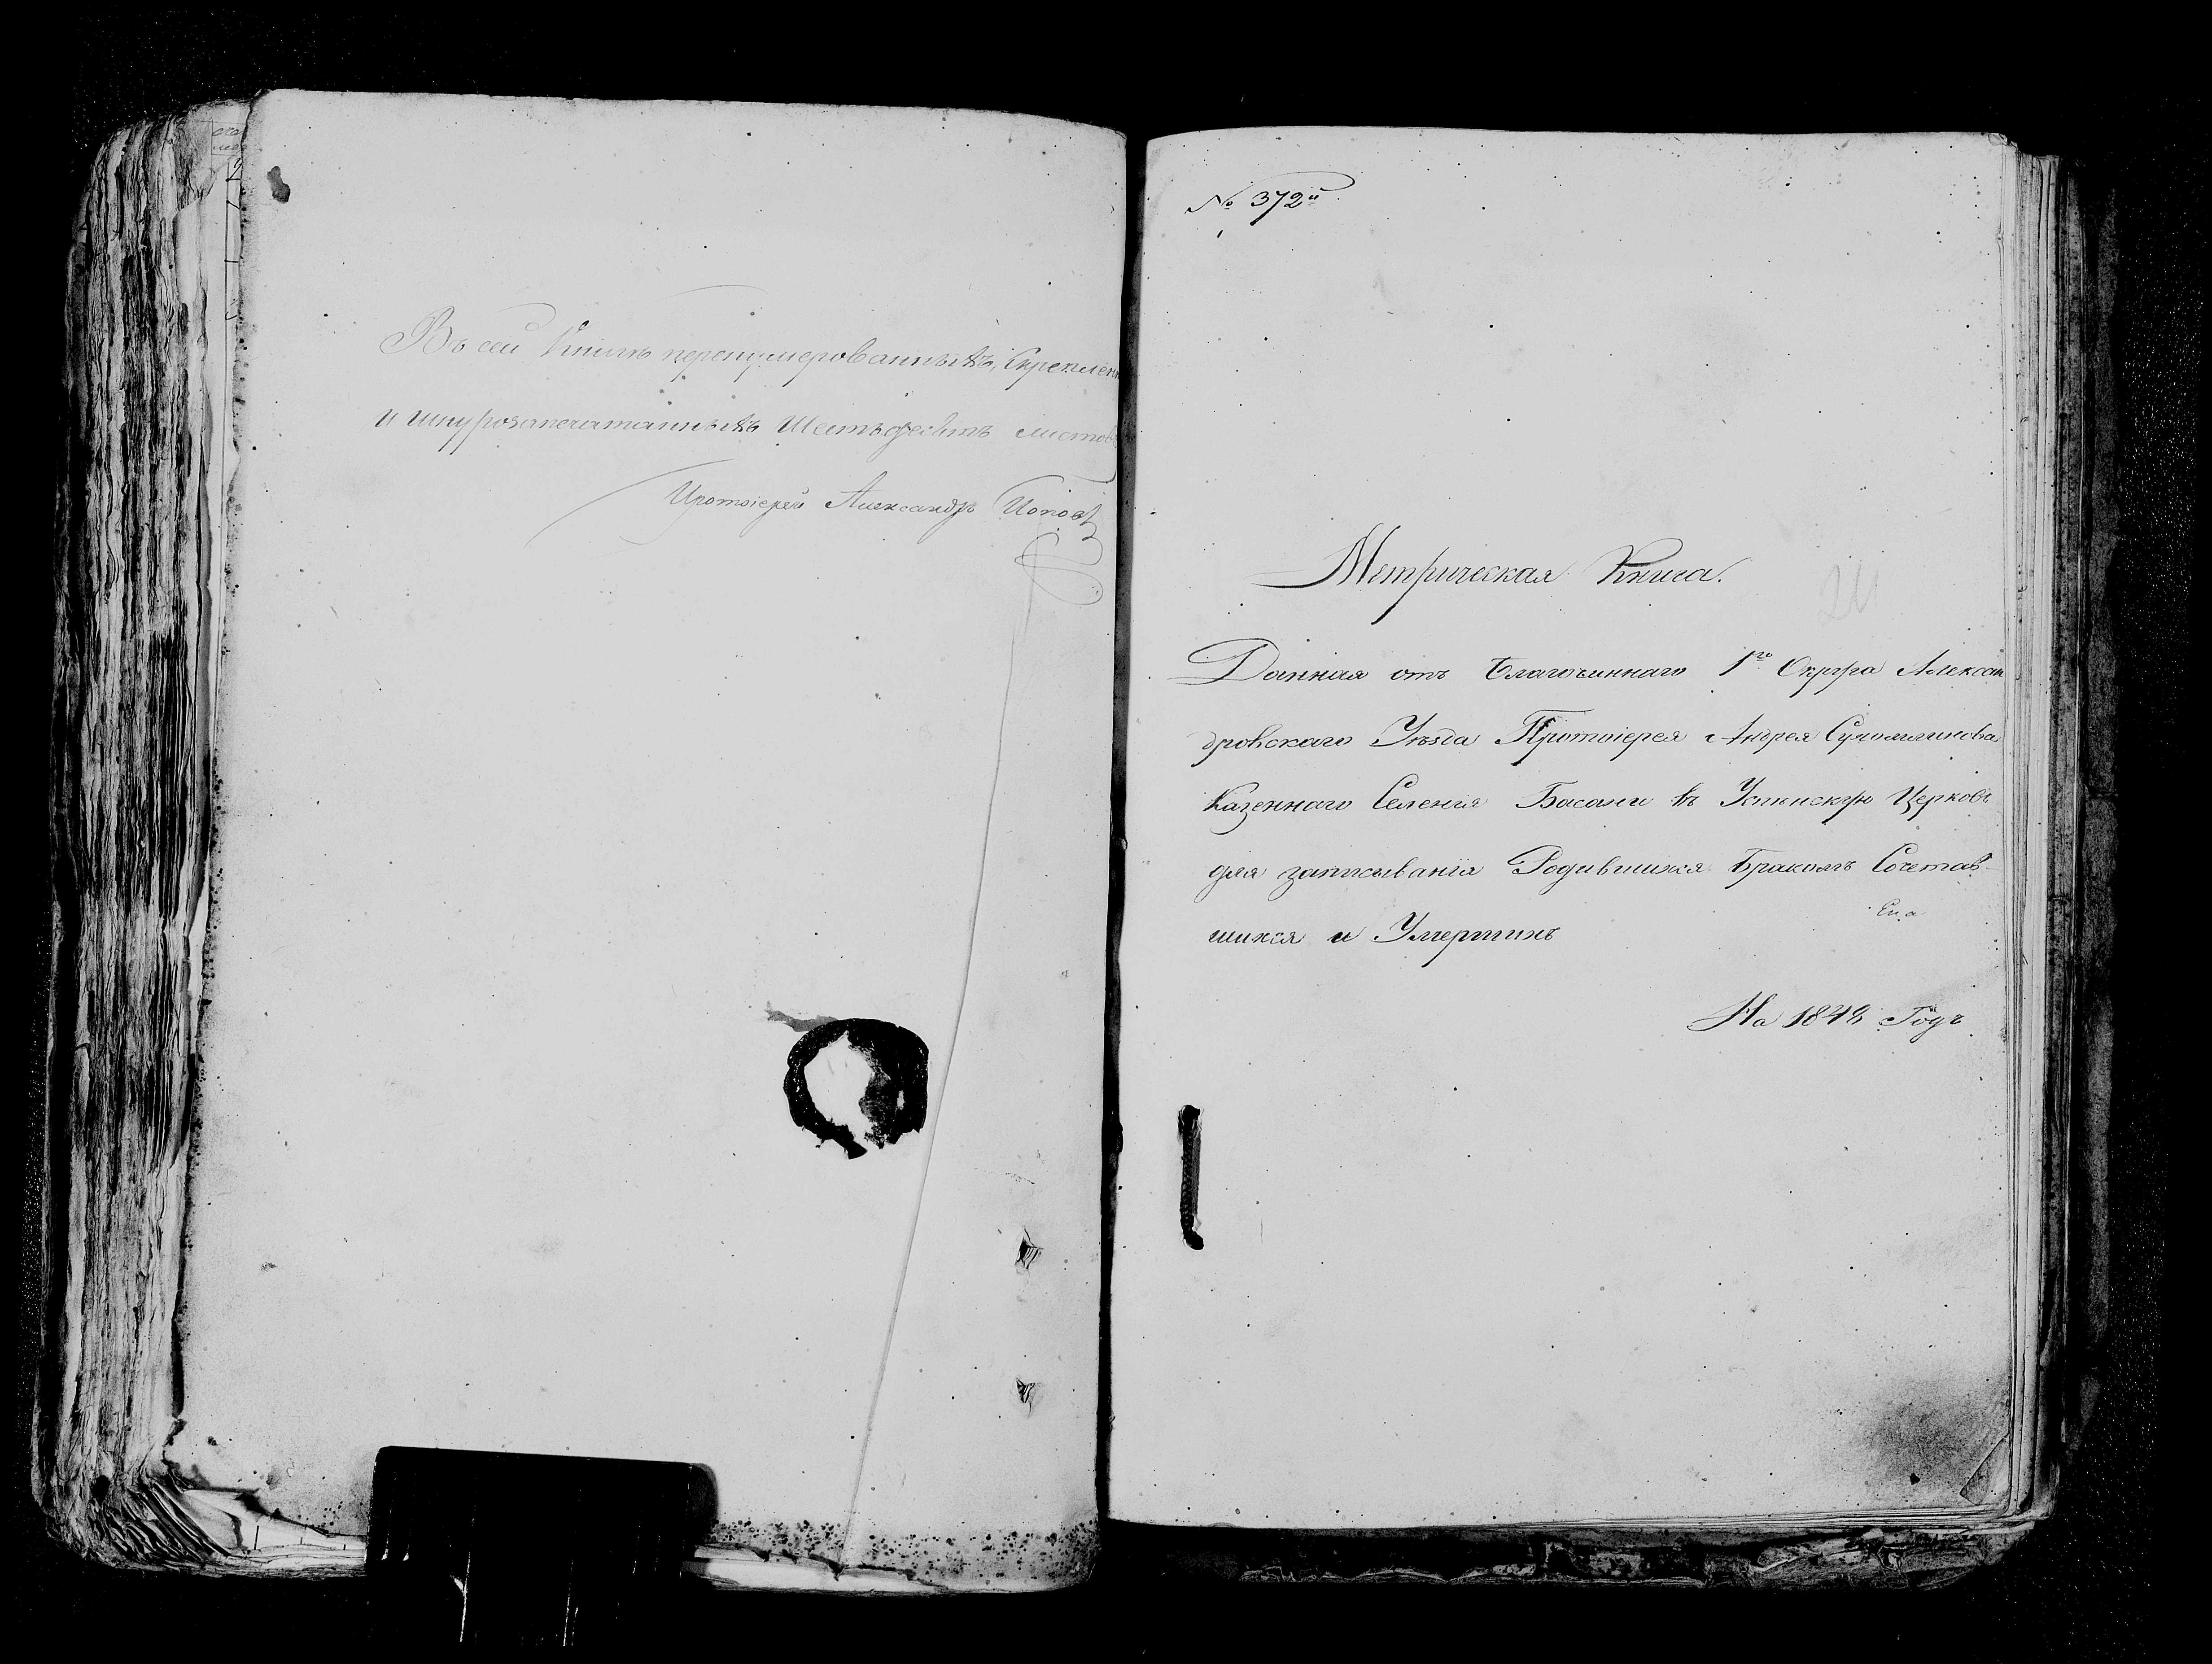 Въ сей Книгѣ перенумерованныхъ, Скреплен
и шнурозапечатанныхъ Шестьдесятъ листов
Протоіерей Александръ Поповъ
№ 372й
Метрическая Книга.
Данная отъ Благочиннаго 1го Округа Алексан
дровскаго Уѣзда Протоіерея Андрея Сухомлинова
Казеннаго Селенія Басани въ Успенскую Церковь
для записыванія Родившихся Бракомъ Сочетав-
шихся и Умершихъ
На 1848 Годъ